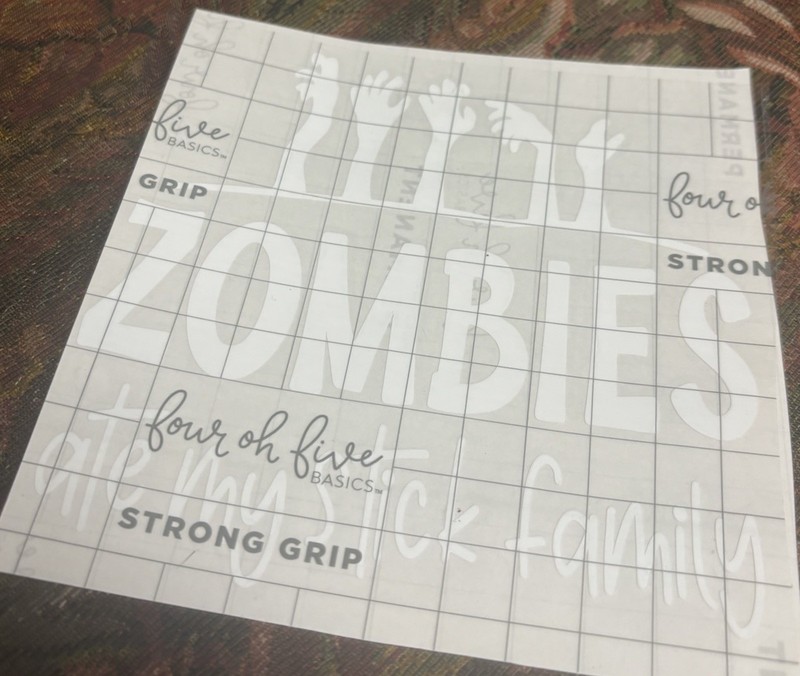 five
BASICS™
GRIP
four o
STRON
ZOMBIES
four oh five
BASICS™
ate my stick family
STRONG GRIP